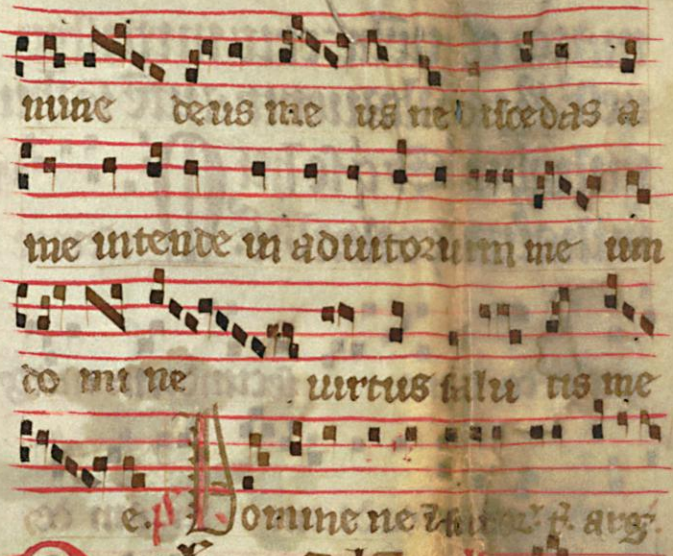 mine deus me us ne discedas a
me intende in adiutorium me um
do mi ne uirtus salu tis me
e. ps Domine ne arg